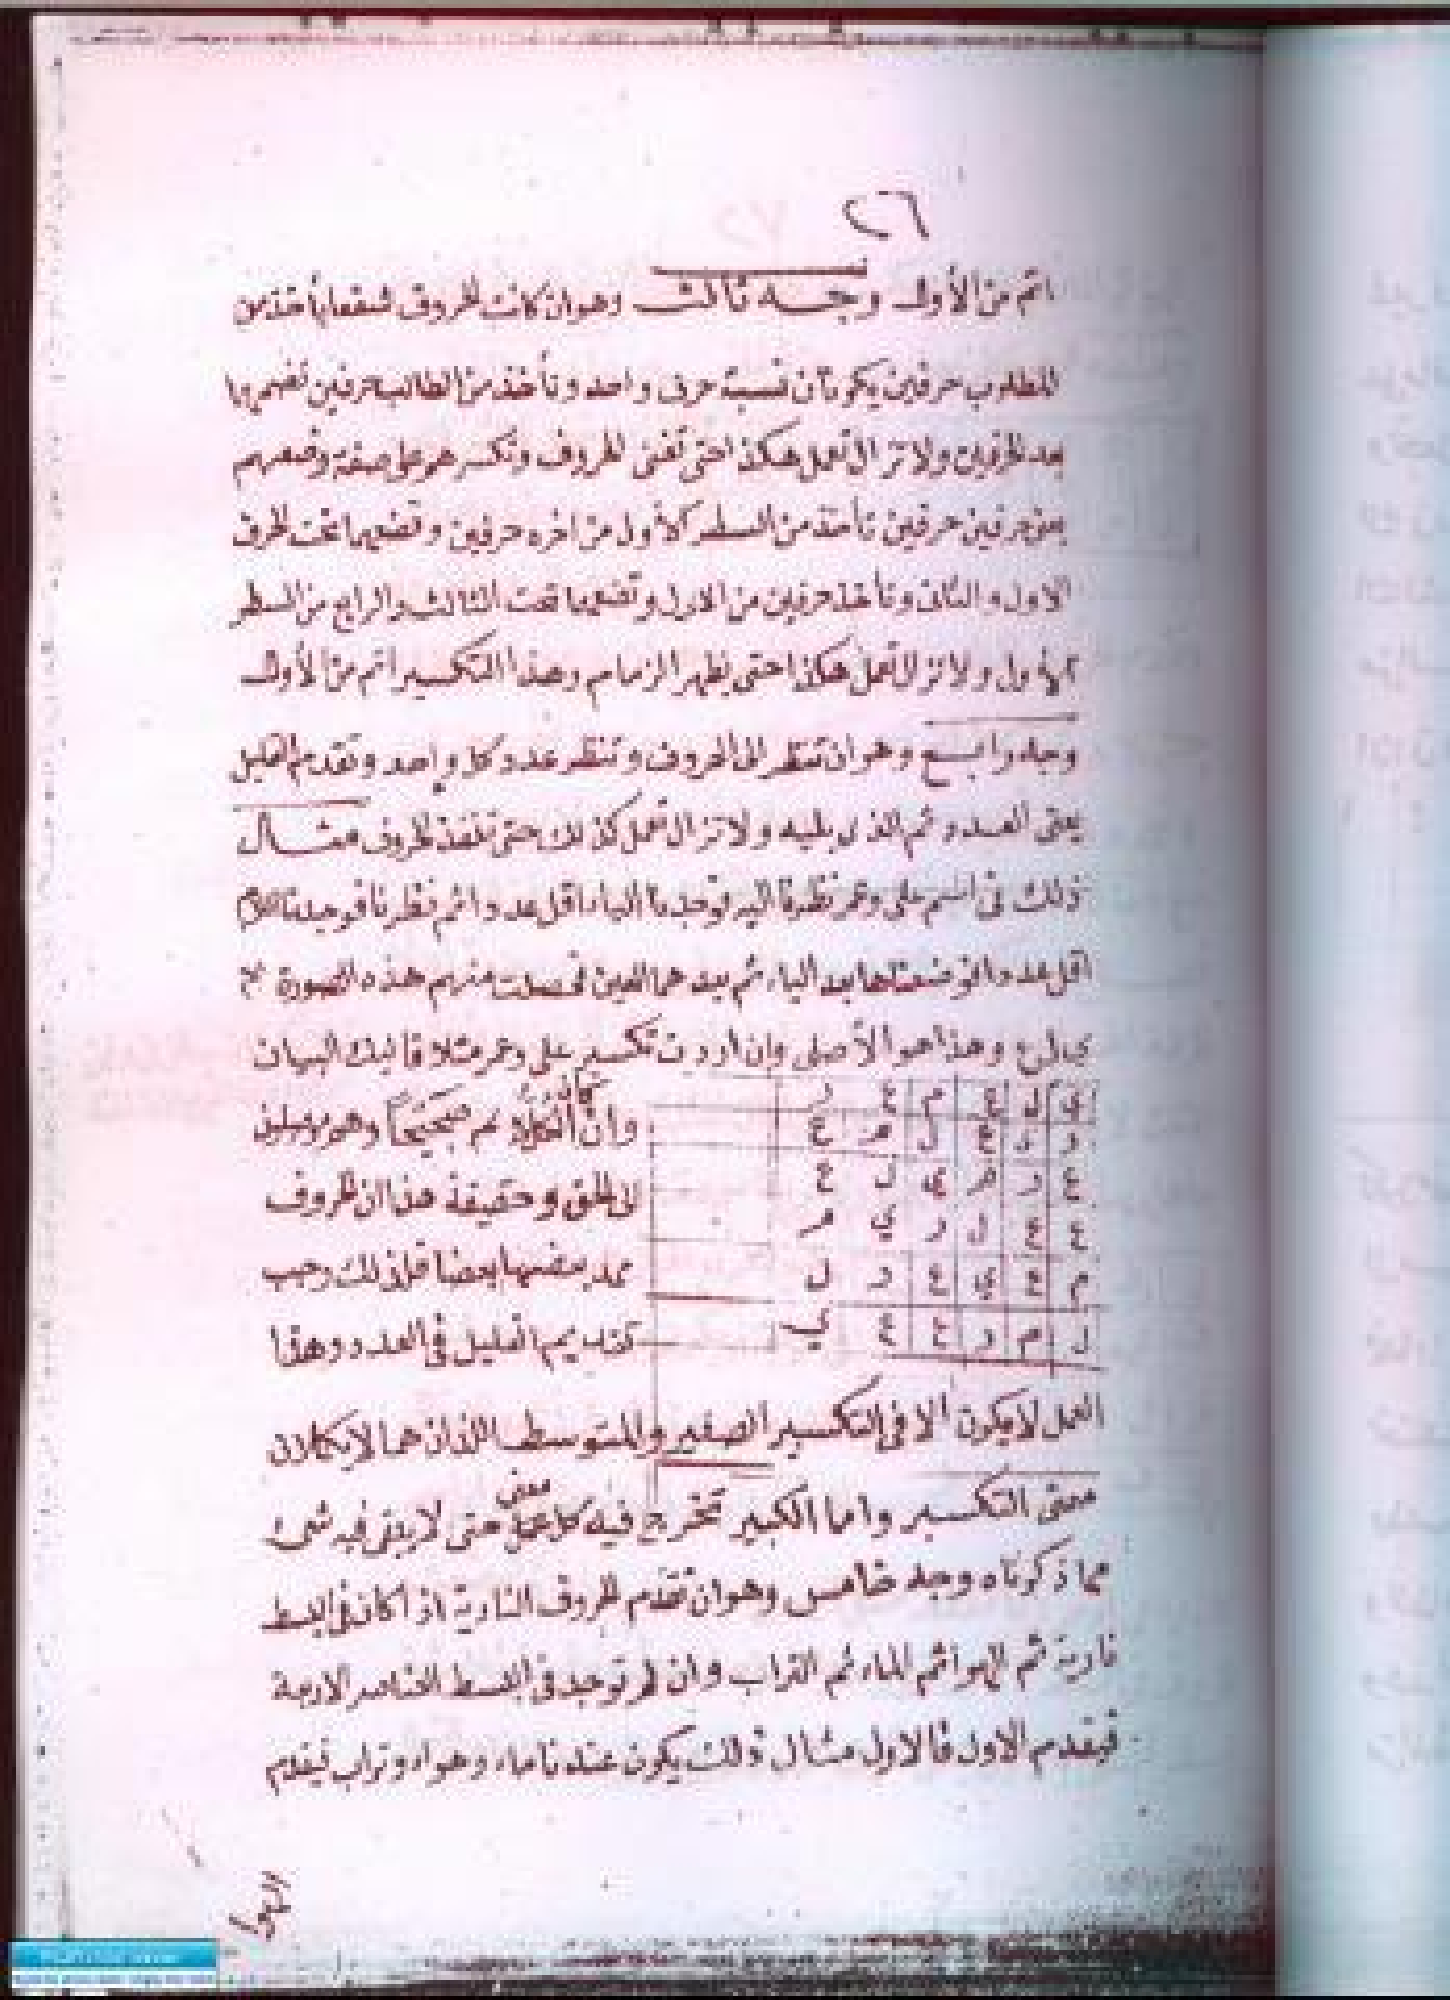 ٢٦
اتم من الأول وجه ثالث وهو ان كانت الحروف شفعا تأخذ من
المطلوب حرفين يكونان نسبة حرف واحد وتأخذ من الطالب حرفين تضمهما
بعد الحرفين ولا تزال تعمل هكذا حتى تفنى الحروف وتكسرهم على صفة وضعهم
يعنى حرفين حرفين تأخذ من السطر الأول من اخره حرفين وتضعهما تحت الحرف
الاول والثانى وتأخذ حرفين من الاول وتضعهما تحت الثالث والرابع من السطر
الأول ولا تزال تعمل هكذا حتى يظهر الزمام وهذا التكسير اتم من الأول
وجه رابع وهو ان تنظر الى الحروف وتنظر عدد كل واحد وتقدم القليل
يعنى العدد ثم الذى يليه ولا تزال تعمل كذلك حتى تنفذ الحروف مثال
ذلك فى اسم على وعمر نظرنا اليه فوجدنا الياء اقل عددا ثم نظرنا فوجدنا اللام
اقل عددا فوضعناها بعد الياء ثم بعدهما العين فحصلت منهم هذه الصورة
وهذا هو الأصلى وان اردت تكسير على وعمر مثلا فاليك البيان
ي ل ع م ع ر
ر ي ع ل م ع
ع ر م ي ل ع
ع ع ل ر ي م
م ع ي ع ر ل
ل م ر ع ع ي
وان كان الكلام صحيحا وهو موصلين
الى الحق وحقيقة هذا ان الحروف
تمد بعضها بعضا فلذلك وجب
تقديم القليل فى العدد وهذا
العمل لا يكون الا فى التكسير الصغير والمتوسط اللذان هما لا يكملان
معنى التكسير واما الكبير تخرج فيه كل معنى حتى لا يبقى فيه شئ
مما ذكرناه وجه خامس وهو ان تقدم الحروف النارية اذا كان فى البسط
نارية ثم الهوا ثم الماء ثم التراب وان لم توجد فى البسط العناصر الاربعة
فيقدم الاول فالاول مثال ذلك يكون عندنا ماء وهواء وتراب فيقدم
الهوا